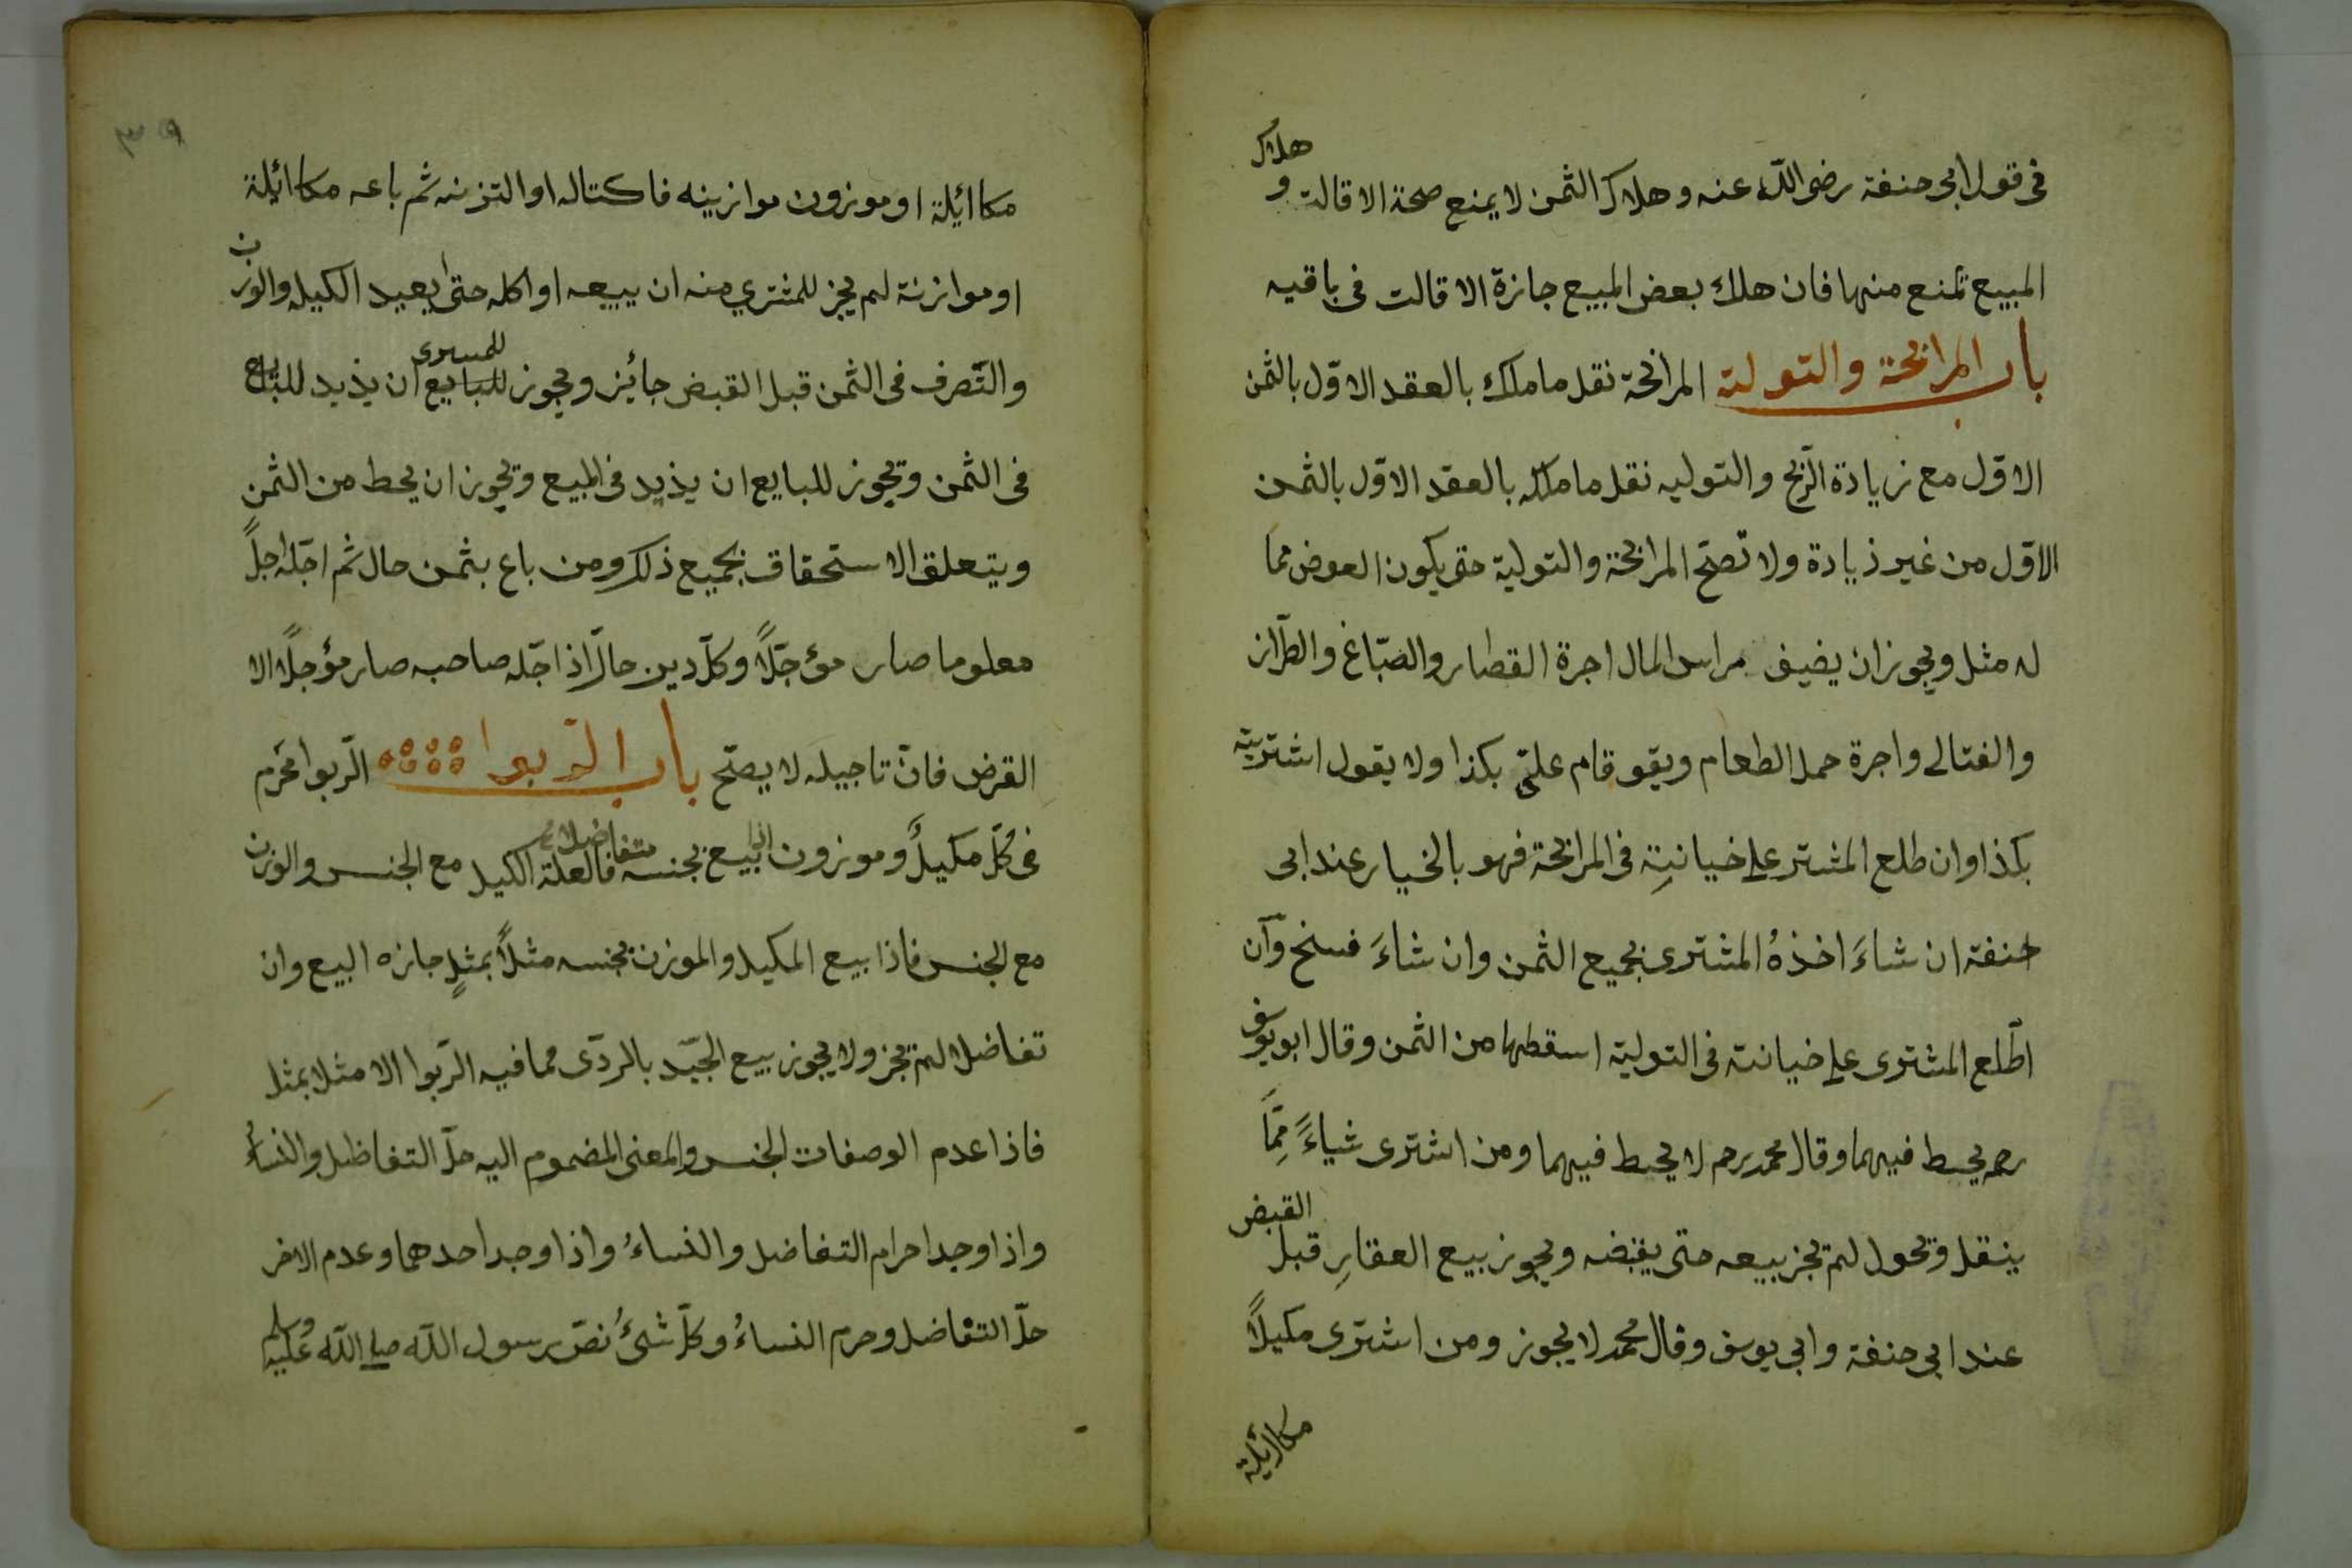 فى قول ابى حنفة رضى الله عنه و هلاك الثمن لا يمنع صحة الاقالت و هلاك
المبيع تمنع منها فان هلك بعض المبيع جازة الاقالت فى باقيه
باب المرابحة والتولية المرابحة نقل ما ملك بالعقد الاوّل بالثمن
الاوّل مع زيادة الرّبح والتوليه نقل ما ملكه بالعقد الاوّل بالثمن
الاوّل من غير ذيادة ولا تصحّ المرابحة والتولية حتى يكون العوض مما
له مثل ويجوز ان يضيف براس المال اجرة القصار والصبّاغ والطرّاز
والفتالے واجرة حمل الطعام ويقو قام علىّ بكذا ولا يقول اشتريته
بكذا وان طلع المشتر علے خيانتِه فى المرابحة فهو بالخيار عند ابى
حنفة ان شاءَ اخذهُ المشترى بجميع الثمن وان شاءَ فسخ وان
اطّلع المشترى علے خيانته فى التولية اسقطها من الثمن وقال ابو يوسف
رحمه يحيط فيهما وقال محمد رحم لا يحيط فيهما ومن اشترى شياءً مِمَّا
ينقل ويحول لم يجز بيعه حتى يقبضه ويجوز بيع العقارِ قبل القبض
عند ابى حنفة وابى يوسف وقال محمد لا يجوز ومن اشترى مكيلاً
مكائيلة
٣٥٩
مكائيلة او موزون موازينه فاكتاله او التزنه ثم باعه مكائيلة
او موازنة لم يجز للمشتري منه ان يبيعه او اكله حتى يعيد الكيل والوزن
والتّصرف فى الثمن قبل القبض جائيز ويجوز للبايع للمسترى ان يذيد للبايع
فى الثمن ويجوز للبايع ان يذيد فى المبيع ويجوز ان يحط من الثمن
ويتعلق الاستحقاق بجميع ذلك ومن باع بثمن حال ثم اجّله اجلاً
معلوما صار مؤجّلاً وكلّ دين حالّ اذا اجّله صاحبه صار مؤجلًا الا
القرض فانّ تاجيله لا يصحّ باب الرّبوا الرّبوا محرّم
فى كلّ مكيل و موزون اذا بيع بجنسه متفاضلا فالعلة الكيل مع الجنس والوزن
مع الجنس فاذا بيع المكيل و الموزن بجنسه مثلاً بمثلٍ جازه البيع وان
تفاضلا لم يجز ولا يجوز بيع الجيّد بالردّى مما فيه الرّبوا الا مثلا بمثل
فاذا عدم الوصفات الجنس والمعنى المضموم اليه حلّ التفاظل والنساءُ
واذا وجدا حرام التفاضل والنساءُ واذا وجد احدهما وعدم الاخر
حلّ التفاضل وحرم النساءُ وكلّ شئُ نصّ رسول اللّه صلے اللّه عليه وسلم